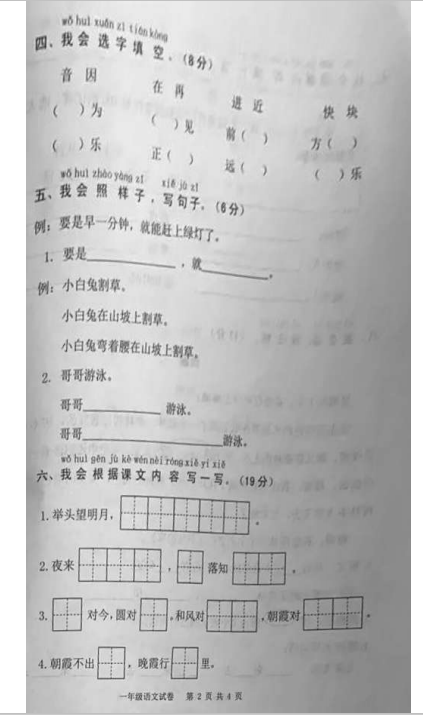 wǒ huì xuǎn zì tián kòng
四、我 会 选 字 填 空。(8分)
音 因 在 再 进 近 快 块
( )为 ( )见 前( ) 方( )
( )乐 正( ) 远( ) ( )乐
wǒ huì zhào yàng zǐ xiě jù zǐ
五、我 会 照 样 子，写句子。(6分)
例：要是早一分钟，就能赶上绿灯了。
1. 要是________，就________。
例：小白兔割草。
小白兔在山坡上割草。
小白兔弯着腰在山坡上割草。
2. 哥哥游泳。
哥哥________游泳。
哥哥________________游泳。
wǒ huì gēn jù kè wén nèi róng xiě yi xiě
六、我 会 根 据 课 文 内 容 写 一 写。(19分)
1. 举头望明月， 。
2. 夜来 ， 落知 。
3. 对今，圆对 。和风对 ，朝霞对 。
4. 朝霞不出 ，晚霞行 里。
一年级语文试卷 第 2 页 共 4 页